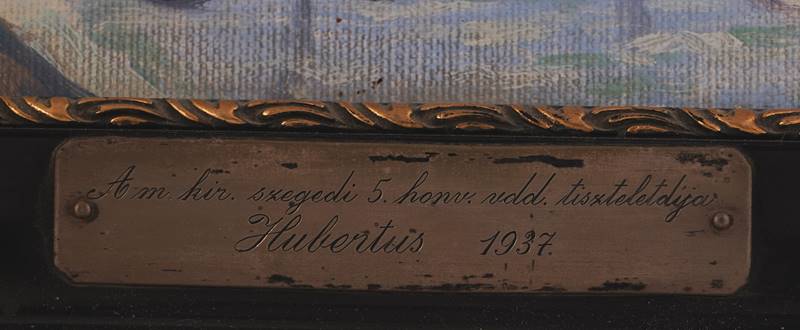 A m. kir. szegedi 5. honv. vdd. tiszteletdija
Hubertus 1937.